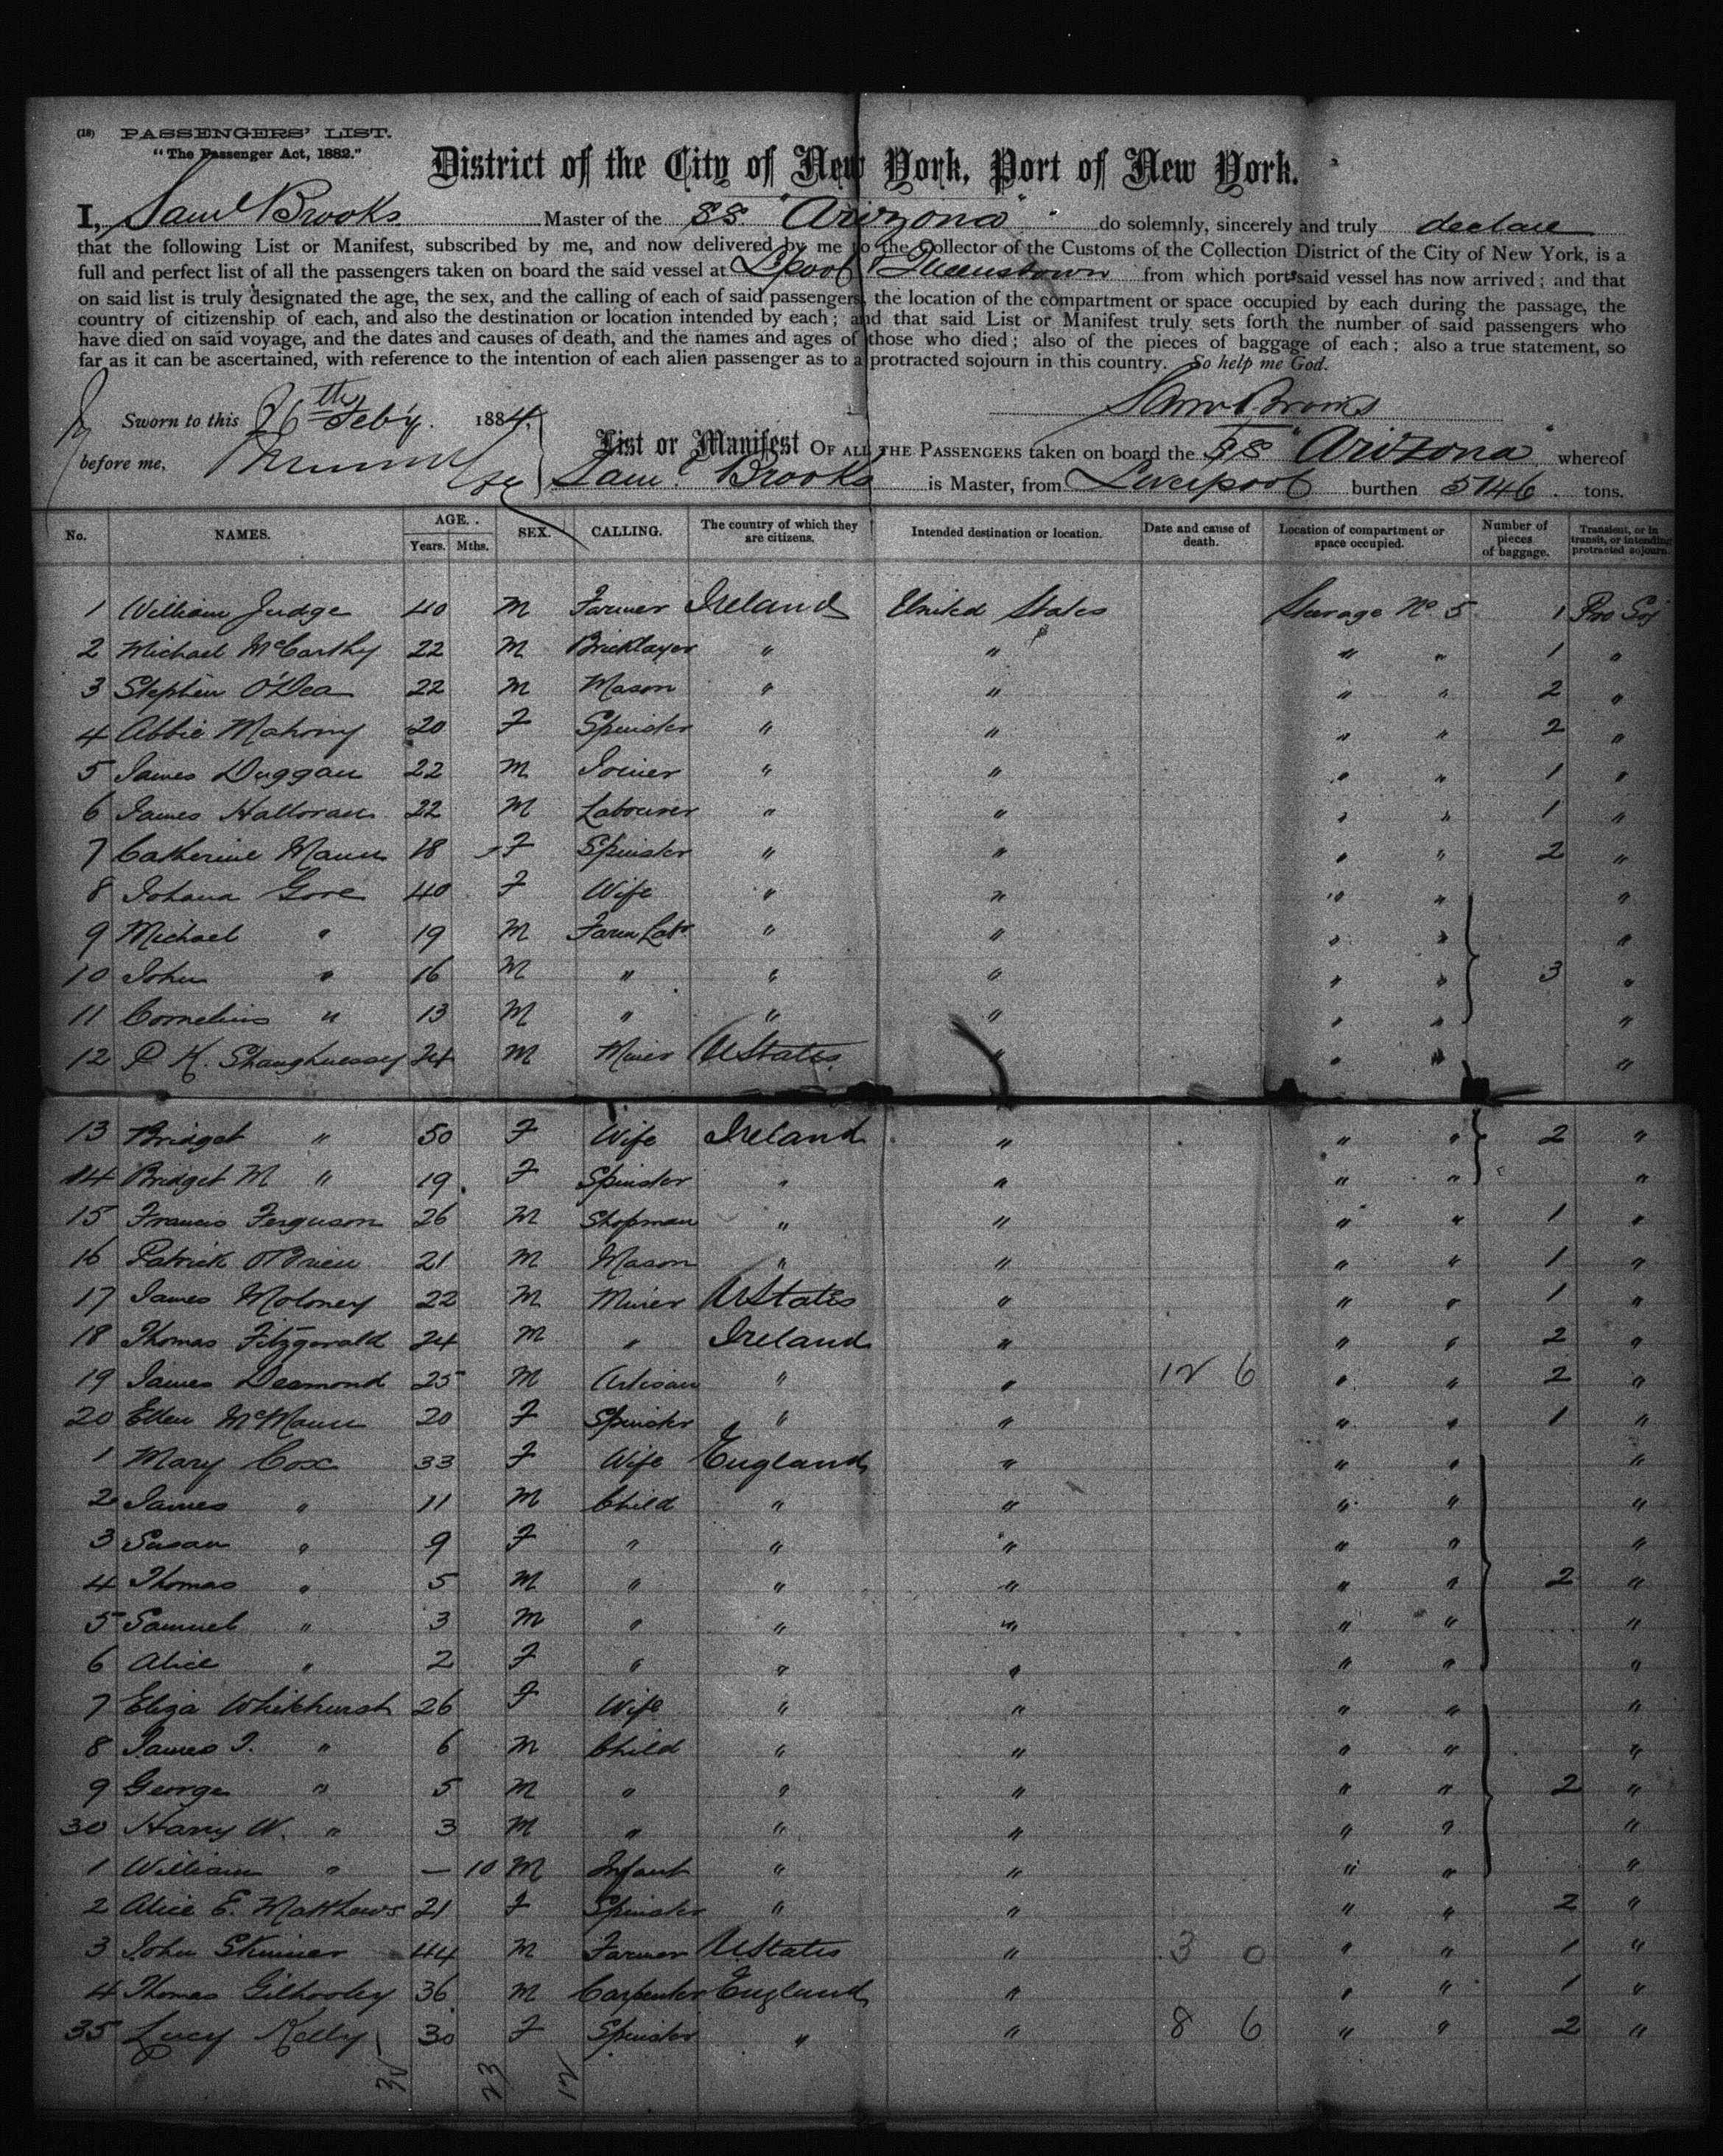 (18) PASSENGERS' LIST.
"The Passenger Act, 1882."
District of the City of New York, Port of New York.
I, Saml Brooks Master of the SS "Arizona" do solemnly, sincerely and truly declare
that the following List or Manifest, subscribed by me, and now delivered by me to the Collector of the Customs of the Collection District of the City of New York, is a
full and perfect list of all the passengers taken on board the said vessel at L'pool & Queenstown from which port said vessel has now arrived; and that
on said list is truly designated the age, the sex, and the calling of each of said passengers, the location of the compartment or space occupied by each during the passage, the
country of citizenship of each, and also the destination or location intended by each; and that said List or Manifest truly sets forth the number of said passengers who
have died on said voyage, and the dates and causes of death, and the names and ages of those who died; also of the pieces of baggage of each; also a true statement, so
far as it can be ascertained, with reference to the intention of each alien passenger as to a protracted sojourn in this country. So help me God.
Sworn to this 26th Feby. 1884, Saml Brooks
before me,
List or Manifest OF ALL THE PASSENGERS taken on board the SS "Arizona" whereof
Saml. Brooks is Master, from Liverpool burthen 5146 tons.
No. NAMES. AGE. Years. Mths. SEX. CALLING. The country of which they are citizens. Intended destination or location. Date and cause of death. Location of compartment or space occupied. Number of pieces of baggage. Transient, or in transit, or intending protracted sojourn.
1 William Judge 40 M Farmer Ireland United States Steerage No. 5 1 Pro Soj
2 Michael McCarthy 22 M Bricklayer " " " " 1 "
3 Stephen O'Dea 22 M Mason " " " " 2 "
4 Abbie Mahony 20 F Spinster " " " " 2 "
5 James Duggan 22 M Joiner " " " " 1 "
6 James Halloran 22 M Labourer " " " " 1 "
7 Catherine Mann 18 F Spinster " " " " 2 "
8 Johana Gore 40 F Wife " " " " "
9 Michael " 19 M Farm Labr " " " " "
10 John " 16 M " " " " " 3 "
11 Cornelius " 13 M " " " " " "
12 P K. Shaughnessy 24 M Miner UStates " " " "
13 Bridget " 50 F Wife Ireland " " " 2 "
14 Bridget M " 19 F Spinster " " " " "
15 Francis Ferguson 26 M Shopman " " " " 1 "
16 Patrick O'Brien 21 M Mason " " " " 1 "
17 James Moloney 22 M Miner UStates " " " 1 "
18 Thomas Fitzgerald 24 M " Ireland " " " 2 "
19 James Desmond 25 M Artisan " " 12 6 " " 2 "
20 Ellen McMann 20 F Spinster " " " " 1 "
1 Mary Cox 33 F Wife England " " " "
2 James " 11 M Child " " " " "
3 Susan " 9 F " " " " " "
4 Thomas " 5 M " " " " " 2 "
5 Samuel " 3 M " " " " " "
6 Alice " 2 F " " " " " "
7 Eliza Whitehurst 26 F Wife " " " " "
8 James T. " 6 M Child " " " " "
9 George " 5 M " " " " " 2 "
30 Harry W. " 3 M " " " " " "
1 William " — 10 M Infant " " " " "
2 Alice E. Matthews 21 F Spinster " " " " 2 "
3 John Skinner 44 M Farmer UStates " 3 0 " " 1 "
4 Thomas Gilhooley 36 M Carpenter England " " " 1 "
35 Lucy Kelly 30 F Spinster " " 8 6 " " 2 "
35 23 12